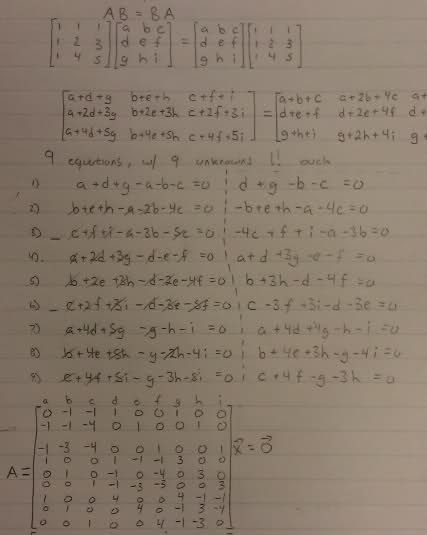 AB = BA
[1 1 1] [a b c] = [a b c] [1 1 1]
[1 2 3] [d e f] [d e f] [1 2 3]
[1 4 5] [g h i] [g h i] [1 4 5]
[a+d+g b+e+h c+f+i] = [a+b+c a+2b+4c a+
[a+2d+3g b+2e+3h c+2f+3i] [d+e+f d+2e+4f d+
[a+4d+5g b+4e+5h c+4f+5i] [g+h+i g+2h+4i g+
9 equations, w/ 9 unknowns !! ouch
1) a+d+g-a-b-c=0 d+g-b-c=0
2) b+e+h-a-2b-4c=0 -b+e+h-a-4c=0
3) c+f+i-a-3b-5c=0 -4c+f+i-a-3b=0
4) a+2d+3g-d-e-f=0 a+d+3g-e-f=0
5) b+2e+3h-d-2e-4f=0 b+3h-d-4f=0
6) c+2f+3i-d-3e-5f=0 c-3f+3i-d-3e=0
7) a+4d+5g-g-h-i=0 a+4d+4g-h-i=0
8) b+4e+5h-g-2h-4i=0 b+4e+3h-g-4i=0
9) c+4f+5i-g-3h-5i=0 c+4f-g-3h=0
a b c d e f g h i
0 -1 -1 1 0 0 1 0 0
-1 -1 -4 0 1 0 0 1 0
-1 -3 -4 0 0 1 0 0 1
1 0 0 1 -1 -1 3 0 0
A = 0 1 0 -1 0 -4 0 3 0 x⃗ = 0⃗
0 0 1 -1 -3 -3 0 0 3
1 0 0 4 0 0 4 -1 -1
0 1 0 0 4 0 -1 3 -4
0 0 1 0 0 4 -1 -3 0